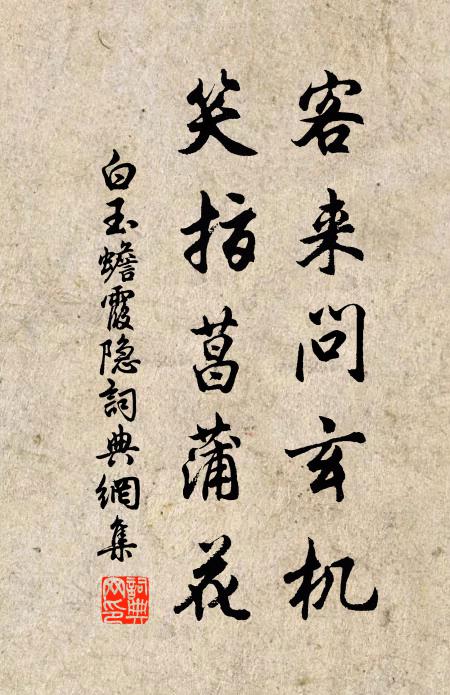 客来问玄机
笑指菖蒲花
白玉蟾霞隐詞典網集
詞典网印